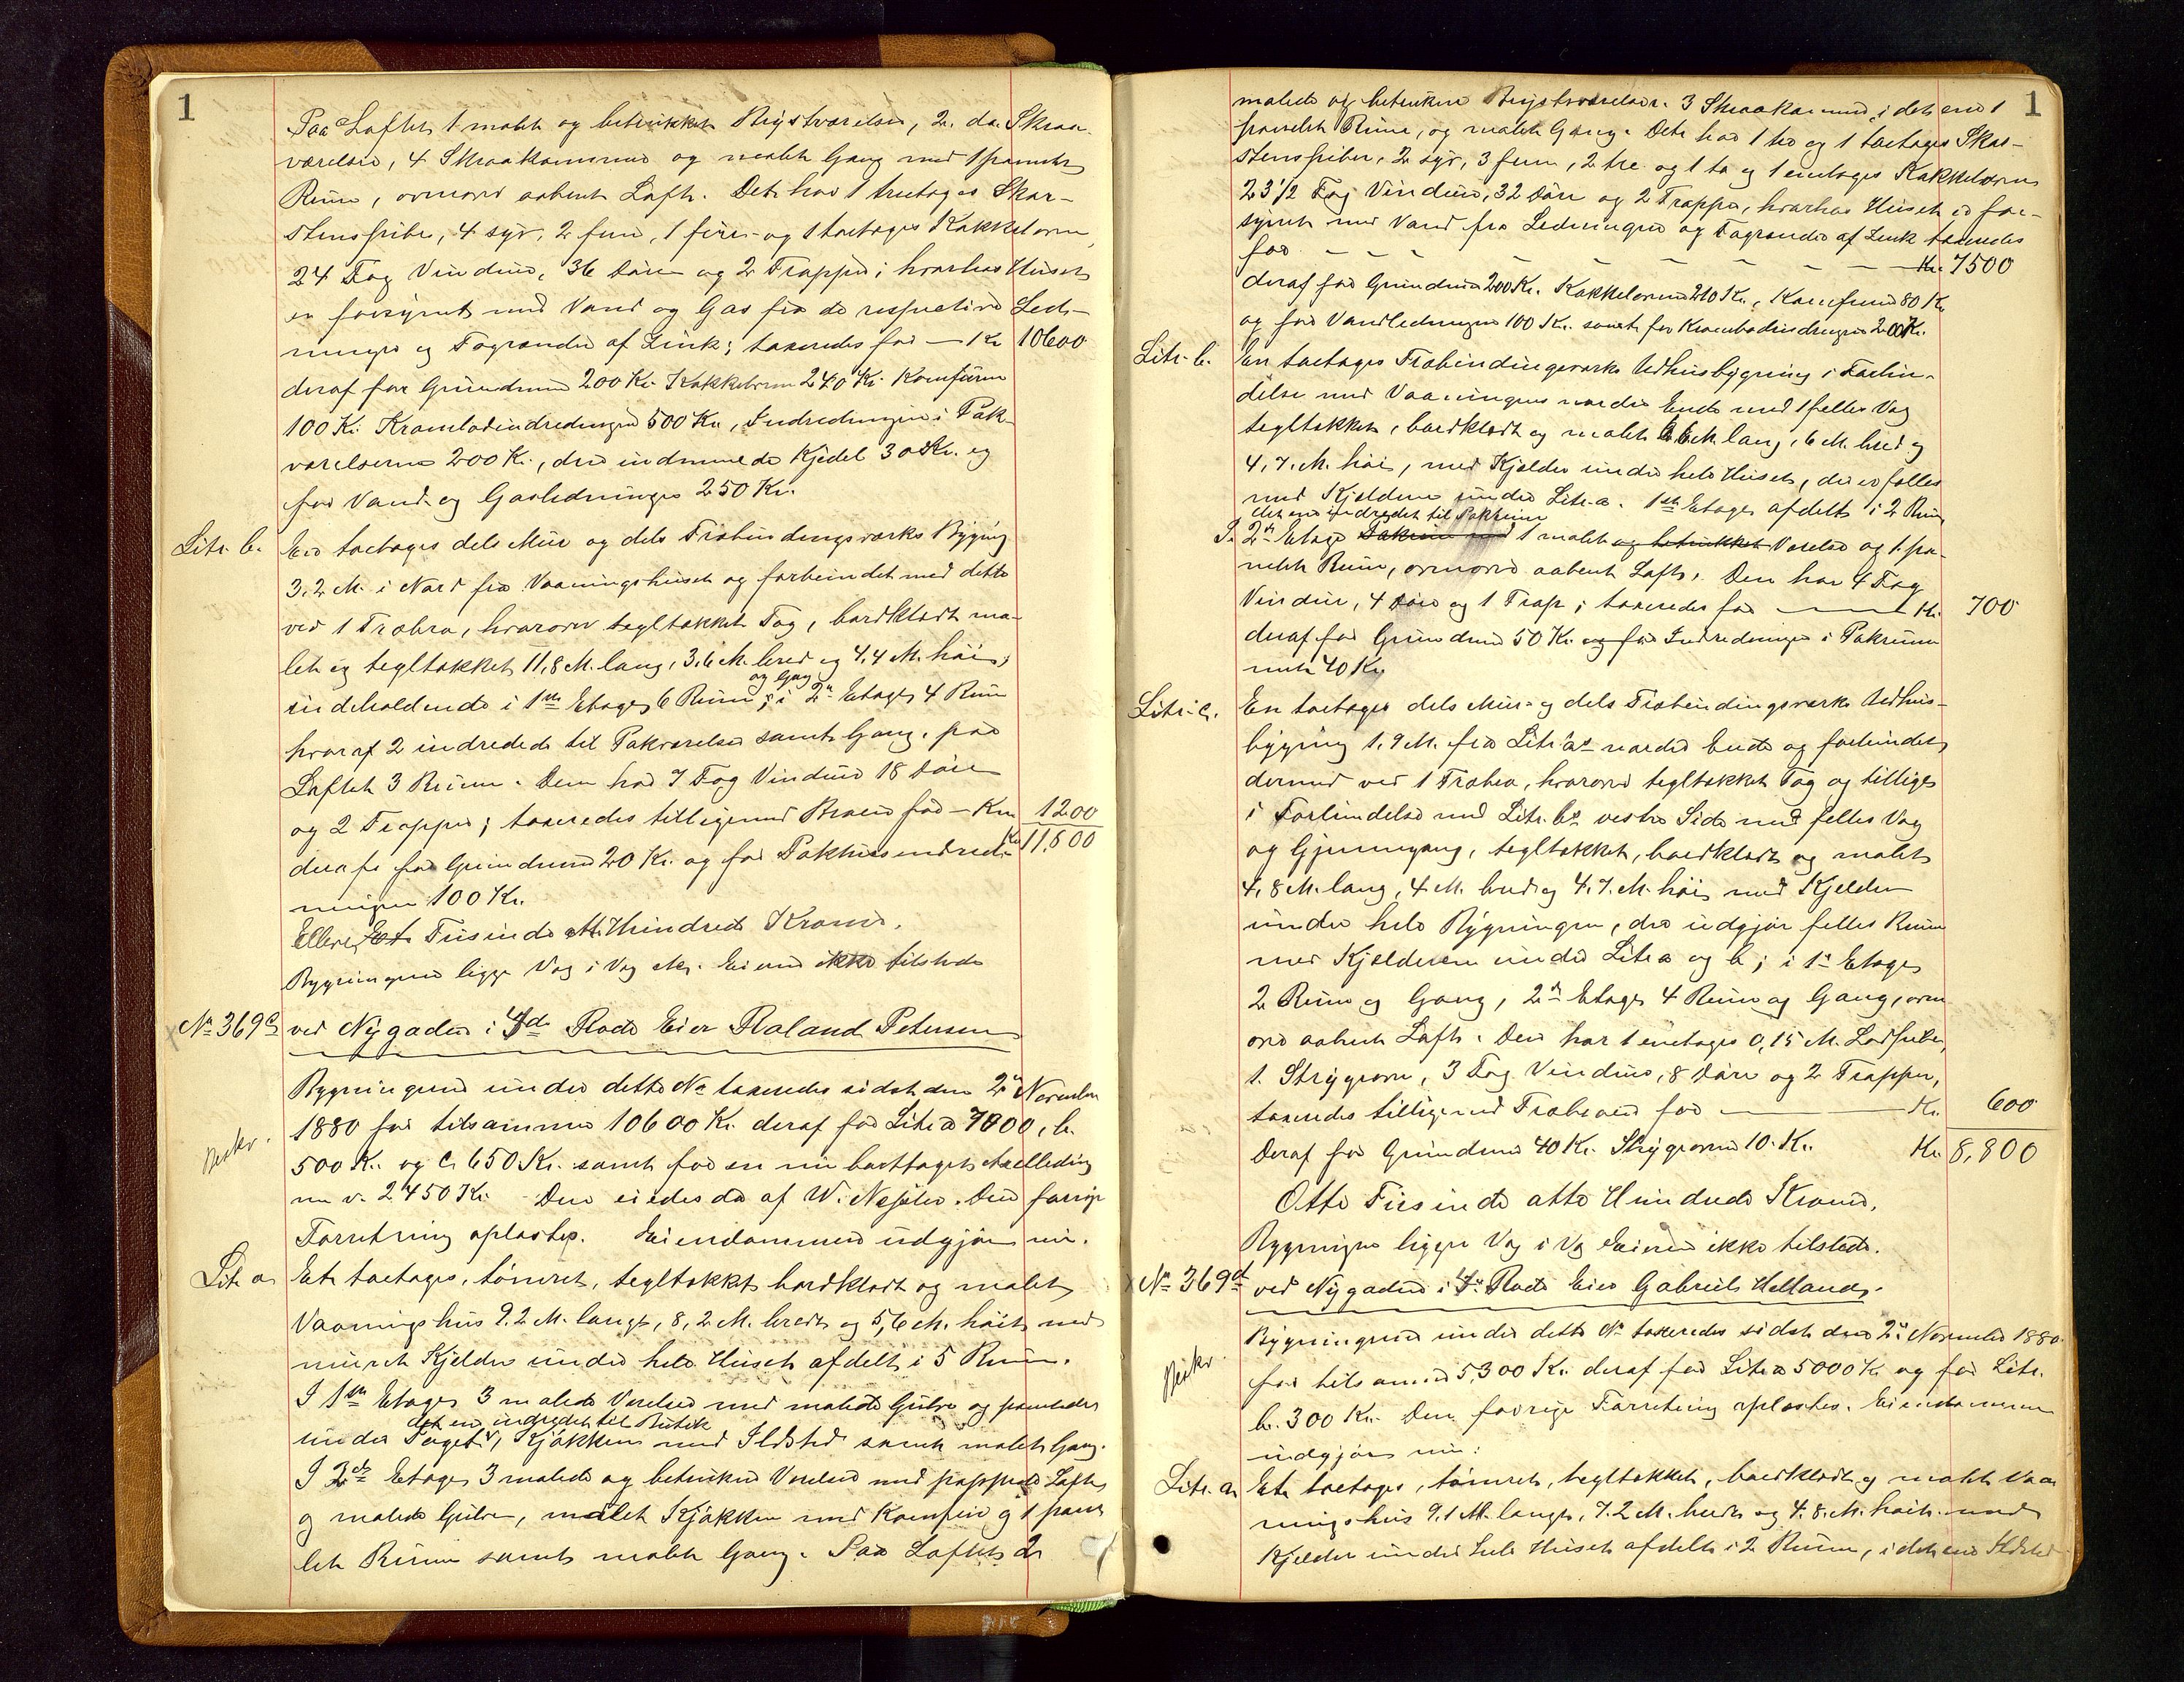 1
Paa Loftet 1 malet og betrukket Brystværelse, 2 do Skraa-
værelser, 4 Skraakammere og malet Gang med 1 panelet
Rum, ovenover aabent Loft. Det har 1 treetages Skor-
stenspibe, 4 syv, 2 fem, 1 fire- og 1 toetages Kakkelovn,
24 Fag Vinduer, 36 Døre og 2 Trapper; hvorhos Huset
er forsynet med Vand og Gas fra de respective Led-
ninger og Tagrender af Zink; taxeredes for — Kr 10600
deraf for Grundmur 200 Kr. Kakkelovne 240 Kr. Komfurer
100 Kr. Krambodindredningen 500 Kr., Indredningen i Pak-
værelserne 200 Kr., den indmurede Kjedel 30 Kr. og
for Vand og Gasledninger 250 Kr.
Litr. b. En toetages dels Mur og dels Træbindingsværks Bygning
3,2 M. i Nord fra Vaaningshuset og forbundet med dette
ved 1 Træbro, hvorover tegltækket Tag, bordklædt ma-
let og tegltækket, 11,8 M. lang, 3,6 M. bred og 4,4 M. høi;
og Gang
indeholdende i 1ste Etage 6 Rum; i 2n Etage 4 Rum
hvoraf 2 indredede til Pakværelser samt Gang, paa
Loftet 3 Rum. Den har 7 Fag Vinduer 18 Døre
og 2 Trapper; taxeredes tilligemed Broen for — Kr 1200
deraf for Grundmur 20 Kr. og for Pakhusindred- Kr 11,800
ningen 100 Kr.
Elleve Tusinde otte Hundrede Kroner.
Bygningerne ligge Væg i Væg Eieren ikke tilstede
No 369c ved Nygaden i 4de Rode Eier Roland Petersen
Bygningerne under dette No taxeredes sidst den 2n November
Beskr.
1880 for tilsammen 10600 Kr. deraf for Litr a 7000, b.
500 Kr. og c. 650 Kr. samt for en nu borttaget
2450 Kr. Den eiedes da af W. Den forrige
Forretning oplæstes. Eiendommen udgjør nu.
Litr a Et toetages, tømret, tegltækket bordklædt og malet
Vaaningshus 9.2 M. langt, 8,2 M. bredt og 5,6 M. høit med
muret Kjelder under hele Huset afdelt i 5 Rum.
I 1ste Etage 3 malede Værelser med malede Gulve og panelede
det ene indredet til Butik
under Taget, Kjøkken med Ildsted samt malet Gang.
I 2den Etage 3 malede og betrukne Værelser med pappede Lofter
og malede Gulve, malet Kjøkken med Komfur og 1 pane-
let Rum samt malet Gang. Paa Loftet 2
1
malede og betrukne Brystværelser. 3 Skraakammere, i det ene 1
panelet Rum, og malet Gang. Det har 1 tre og 1 toetages Skor-
stenspiber, 2 syv, 3 fem, 2 tre og 1 to og 1 enetages Kakkelovne
23 1/2 Fag Vinduer, 32 Døre og 2 Trapper, hvorhos Huset er for-
synet med Vand fra Ledningen og Tagrender af Zink taxeredes
for - - - - - - - - - Kr. 7500
deraf for Grundmur 200 Kr. Kakkelovne 210 Kr., Komfurer 80 Kr.
og for Vandledningen 100 Kr. samt for Krambodindredningen 200 Kr.
Litr. b. En toetages Træbindingsværks Udhusbygning i Forbin-
delse med Vaaningens nordre Ende med 1 fælles Væg
tegltækket, bordklædt og malet 6 M. lang, 6 M. bred og
4,7 M. høi, med Kjelder under hele Huset, der er fælles
med Kjelderen under Litr a. 1ste Etage afdelt i 2 Rum
det ene indredet til Pakrum
I 2den Etage Pakrum med 1 malet og betrukket Værelse og 1 pa-
nelet Rum, ovenover aabent Loft. Den har 4 Fag
Vinduer, 4 Døre og 1 Trap; taxeredes for — Kr. 700
deraf for Grundmur 50 Kr. og for Indredningen i Pakrum-
met 40 Kr.
Litr. c. En toetages dels Mur- og dels Træbindingsværks Udhus-
bygning 1,9 M. fra Litr a's nordre Ende og forbundet
dermed ved 1 Træbro, hvorover tegltækket Tag og tilliges
i Forbindelse med Litr. b's vestre Side med fælles Væg
og Gjennemgang, tegltækket, bordklædt og malet,
4,8 M. lang, 4 M. bred og 4,7 M. høi med Kjelder
under hele Bygningen, der udgjør fælles Rum
med Kjelderen under Litr a og b; i 1ste Etage
2 Rum og Gang, 2den Etage 4 Rum og Gang, oven-
over aabent Loft. Den har 1 enetages 0,15 M. Lodpibe,
1 Strygeovn, 3 Fag Vinduer, 8 Døre og 2 Trapper,
taxeredes tilligemed Træbroen for — Kr. 600
Deraf for Grundmur 40 Kr. Strygeovn 10 Kr. Kr. 8,800
Otte Tusinde otte Hundrede Kroner.
Bygningerne ligger Væg i Væg Eieren ikke tilstede.
No 369d ved Nygaden i 4de Rode Eier Gabriel Helland.
Bygningerne under dette No taxeredes sidst den 2n November 1880
Beskr.
for tilsammen 5,300 Kr. deraf for Litr a 5000 Kr og for Litr.
b. 300 Kr. Den forrige Forretning oplæstes. Eiendommen
udgjør nu:
Litr. a. Et toetages, tømret, tegltækket, bordklædt og malet Vaa-
ningshus 9,1 M. langt, 7,2 M. bredt og 4,8 M. høit med
Kjelder under hele Huset afdelt i 2 Rum, i det ene Ildsted